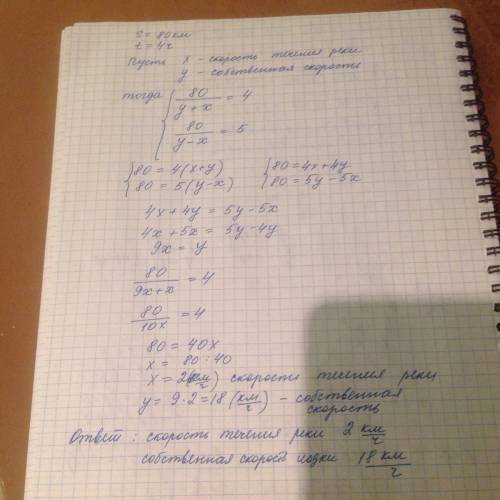 S = 80 км
t = 4ч
Пусть x - скорость течения реки
y - собственная скорость
тогда { 80/(y+x) = 4
80/(y-x) = 5
{ 80 = 4(x+y) { 80 = 4x+4y
80 = 5(y-x) 80 = 5y-5x
4x+4y = 5y-5x
4x+5x = 5y-4y
9x = y
80/(9x+x) = 4
80/10x = 4
80 = 40x
x = 80:40
x = 2(км/ч) скорость течения реки
y = 9·2=18 (км/ч) - собственная
скорость
Ответ: скорость течения реки 2 км/ч
собственная скорость лодки 18 км/ч